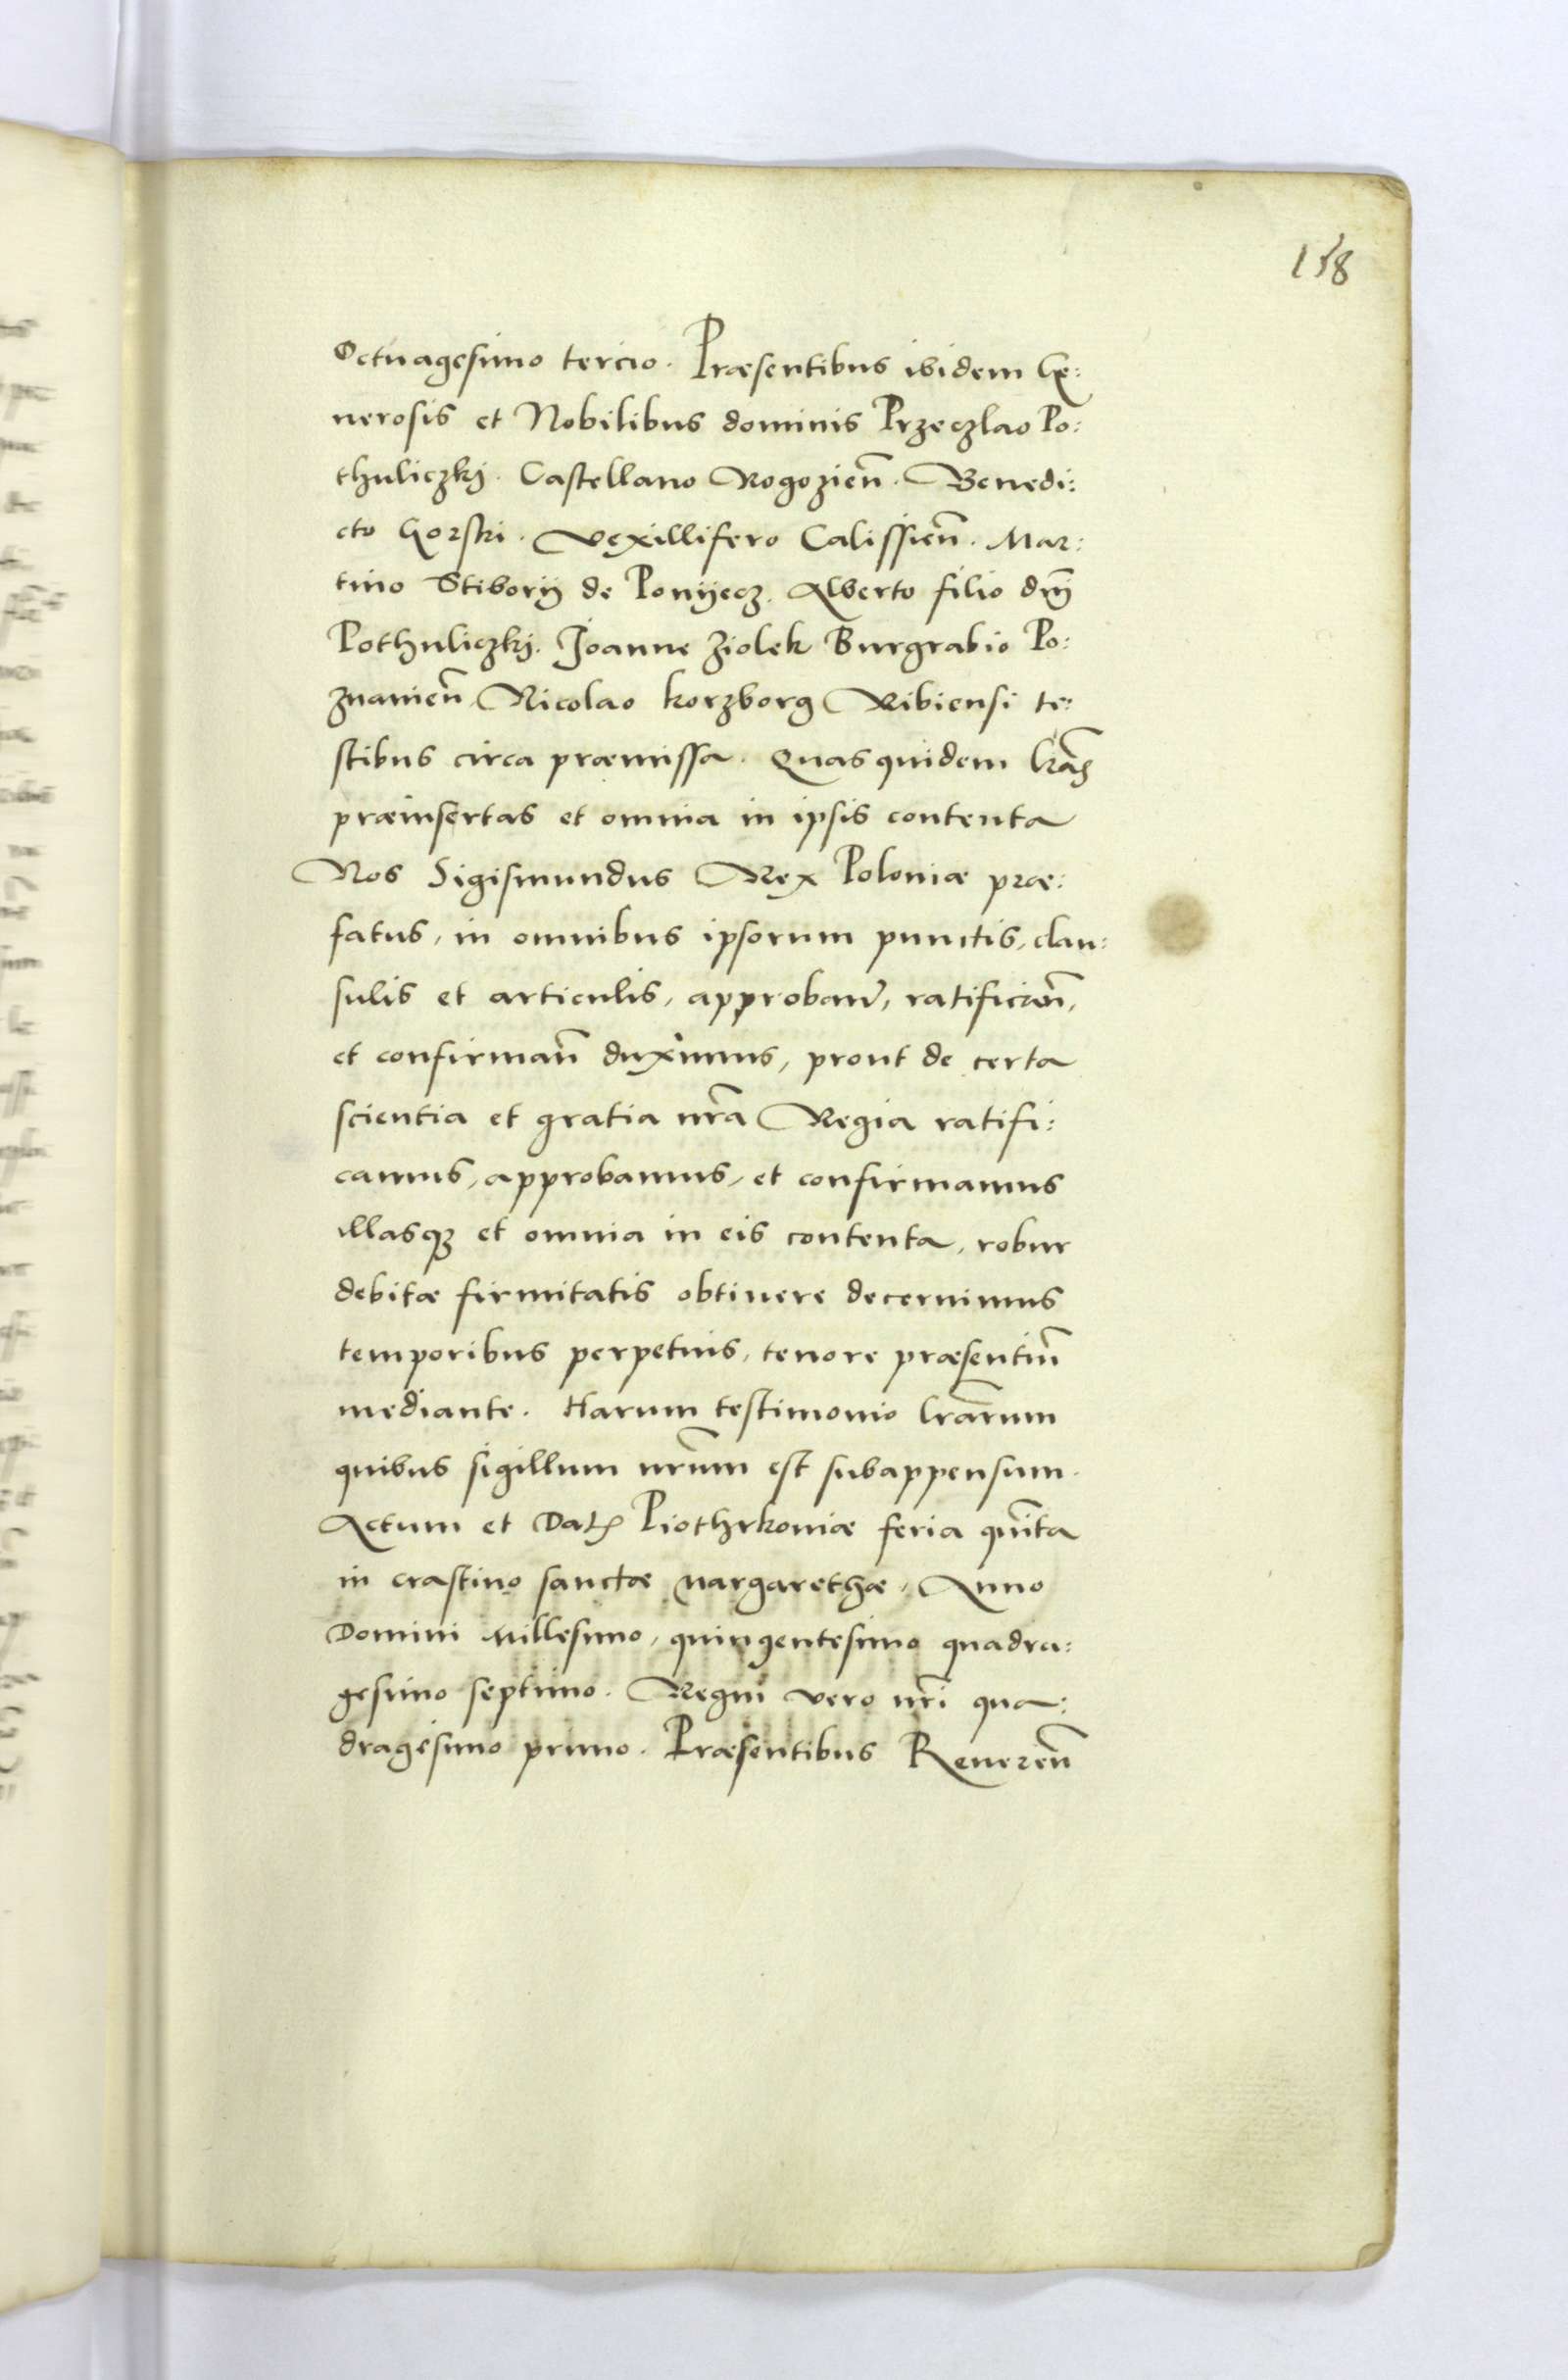 158
Octuagesimo tercio. Præsentibus ibidem Ge:
nerosis et Nobilibus dominis Przeczlao Po:
thuliczkj. Castellano Rogozien̄. Benedi:
cto Gorski. Vexillifero Calissien̄. Mar:
tino Stiborij de Ponijecz. Alberto filio dn̄j
Pothuliczkj. Joanne Ziolek Burgrabio Po:
znanien̄ Nicolao korzborg Ribiensi te:
stibus circa præmissa. Quas quidem lr̄as
præinsertas et omnia in ipsis contenta
Nos Sigismundus Rex Poloniæ præ:
fatus, in omnibus ipsorum punctis, clau:
sulis et articulis, approban̄, ratifican̄,
et confirman̄ duximus, prout de certa
scientia et gratia nr̄a Regia ratifi:
camus, approbamus, et confirmamus
illasqꝫ et omnia in eis contenta, robur
debitæ firmitatis obtinere decernimus
temporibus perpetuis, tenore præsentiū
mediante. Harum testimonio lr̄arum
quibus sigillum nr̄um est subappensum.
Actum et Datꝭ Piothrkoniæ feria quīta
in crastino sanctæ Margarethæ, Anno
Domini Millesimo, quingentesimo quadra:
gesimo septimo. Regni vero nr̄i qua:
dragesimo primo. Præsentibus Reueren̄